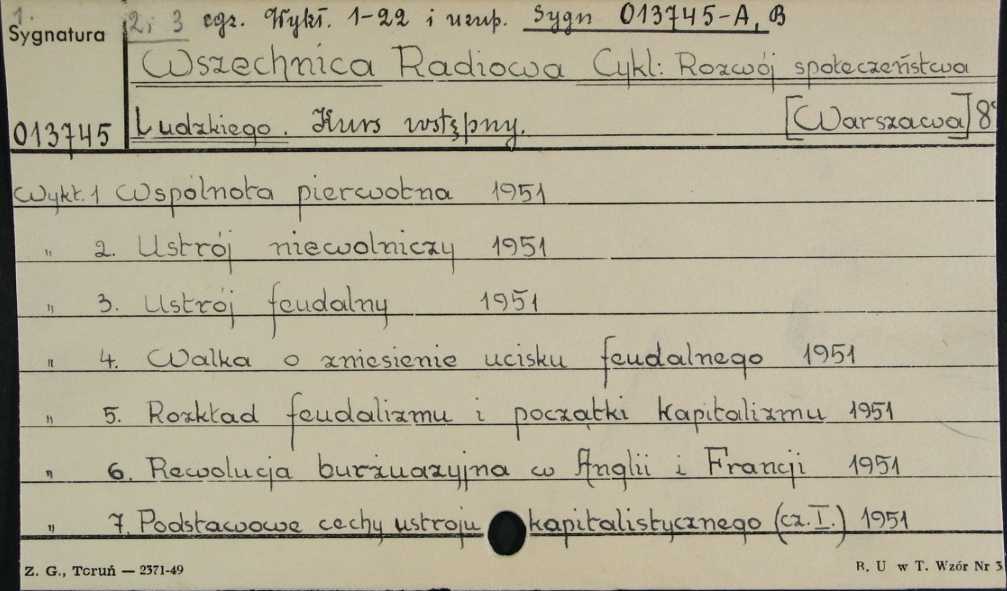 1. 2, 3 egz. Wykł. 1-22 i uzup. Sygn 013745-A, B
Sygnatura
Wszechnica Radiowa Cykl: Rozwój społeczeństwa
013745 Ludzkiego. Kurs wstępny. [Warszawa] 8°
Wykł. 1 Wspólnota pierwotna 1951
" 2. Ustrój niewolniczy 1951
" 3. Ustrój feudalny 1951
" 4. Walka o zniesienie ucisku feudalnego 1951
" 5. Rozkład feudalizmu i początki kapitalizmu 1951
" 6. Rewolucja burżuazyjna w Anglii i Francji 1951
" 7. Podstawowe cechy ustroju kapitalistycznego (cz. I.) 1951
Z. G., Toruń — 2371-49 R. U w T. Wzór Nr 3